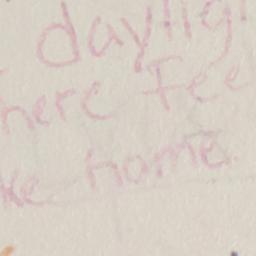 daylig
here fee
ke home.